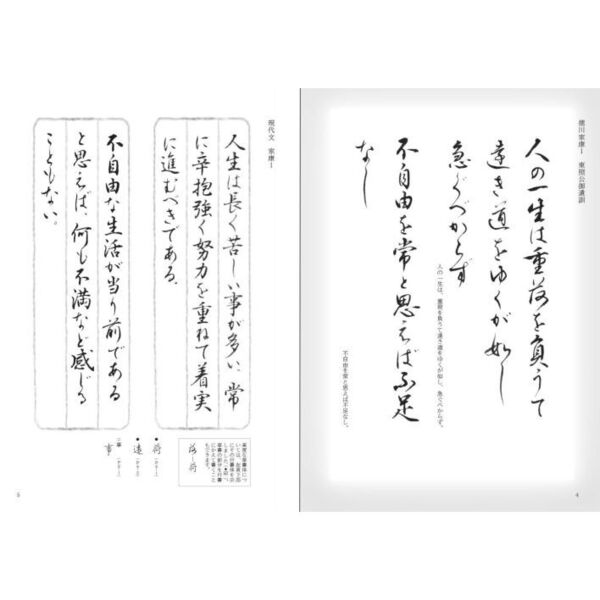 徳川家康1 東照公御遺訓
人の一生は重荷を負うて
遠き道をゆくが如し
急ぐべからず
人の一生は、重荷を負うて遠き道をゆくが如し、急ぐべからず。
不自由を常と思えば不足
なし
不自由を常と思えば不足なし。
4
現代文 家康1
人生は長く苦しい事が多い、常
に辛抱強く努力を重ねて着実
に進むべきである。
不自由な生活が当り前である
と思えば、何も不満など感じる
こともない。
荷
遠
事
5